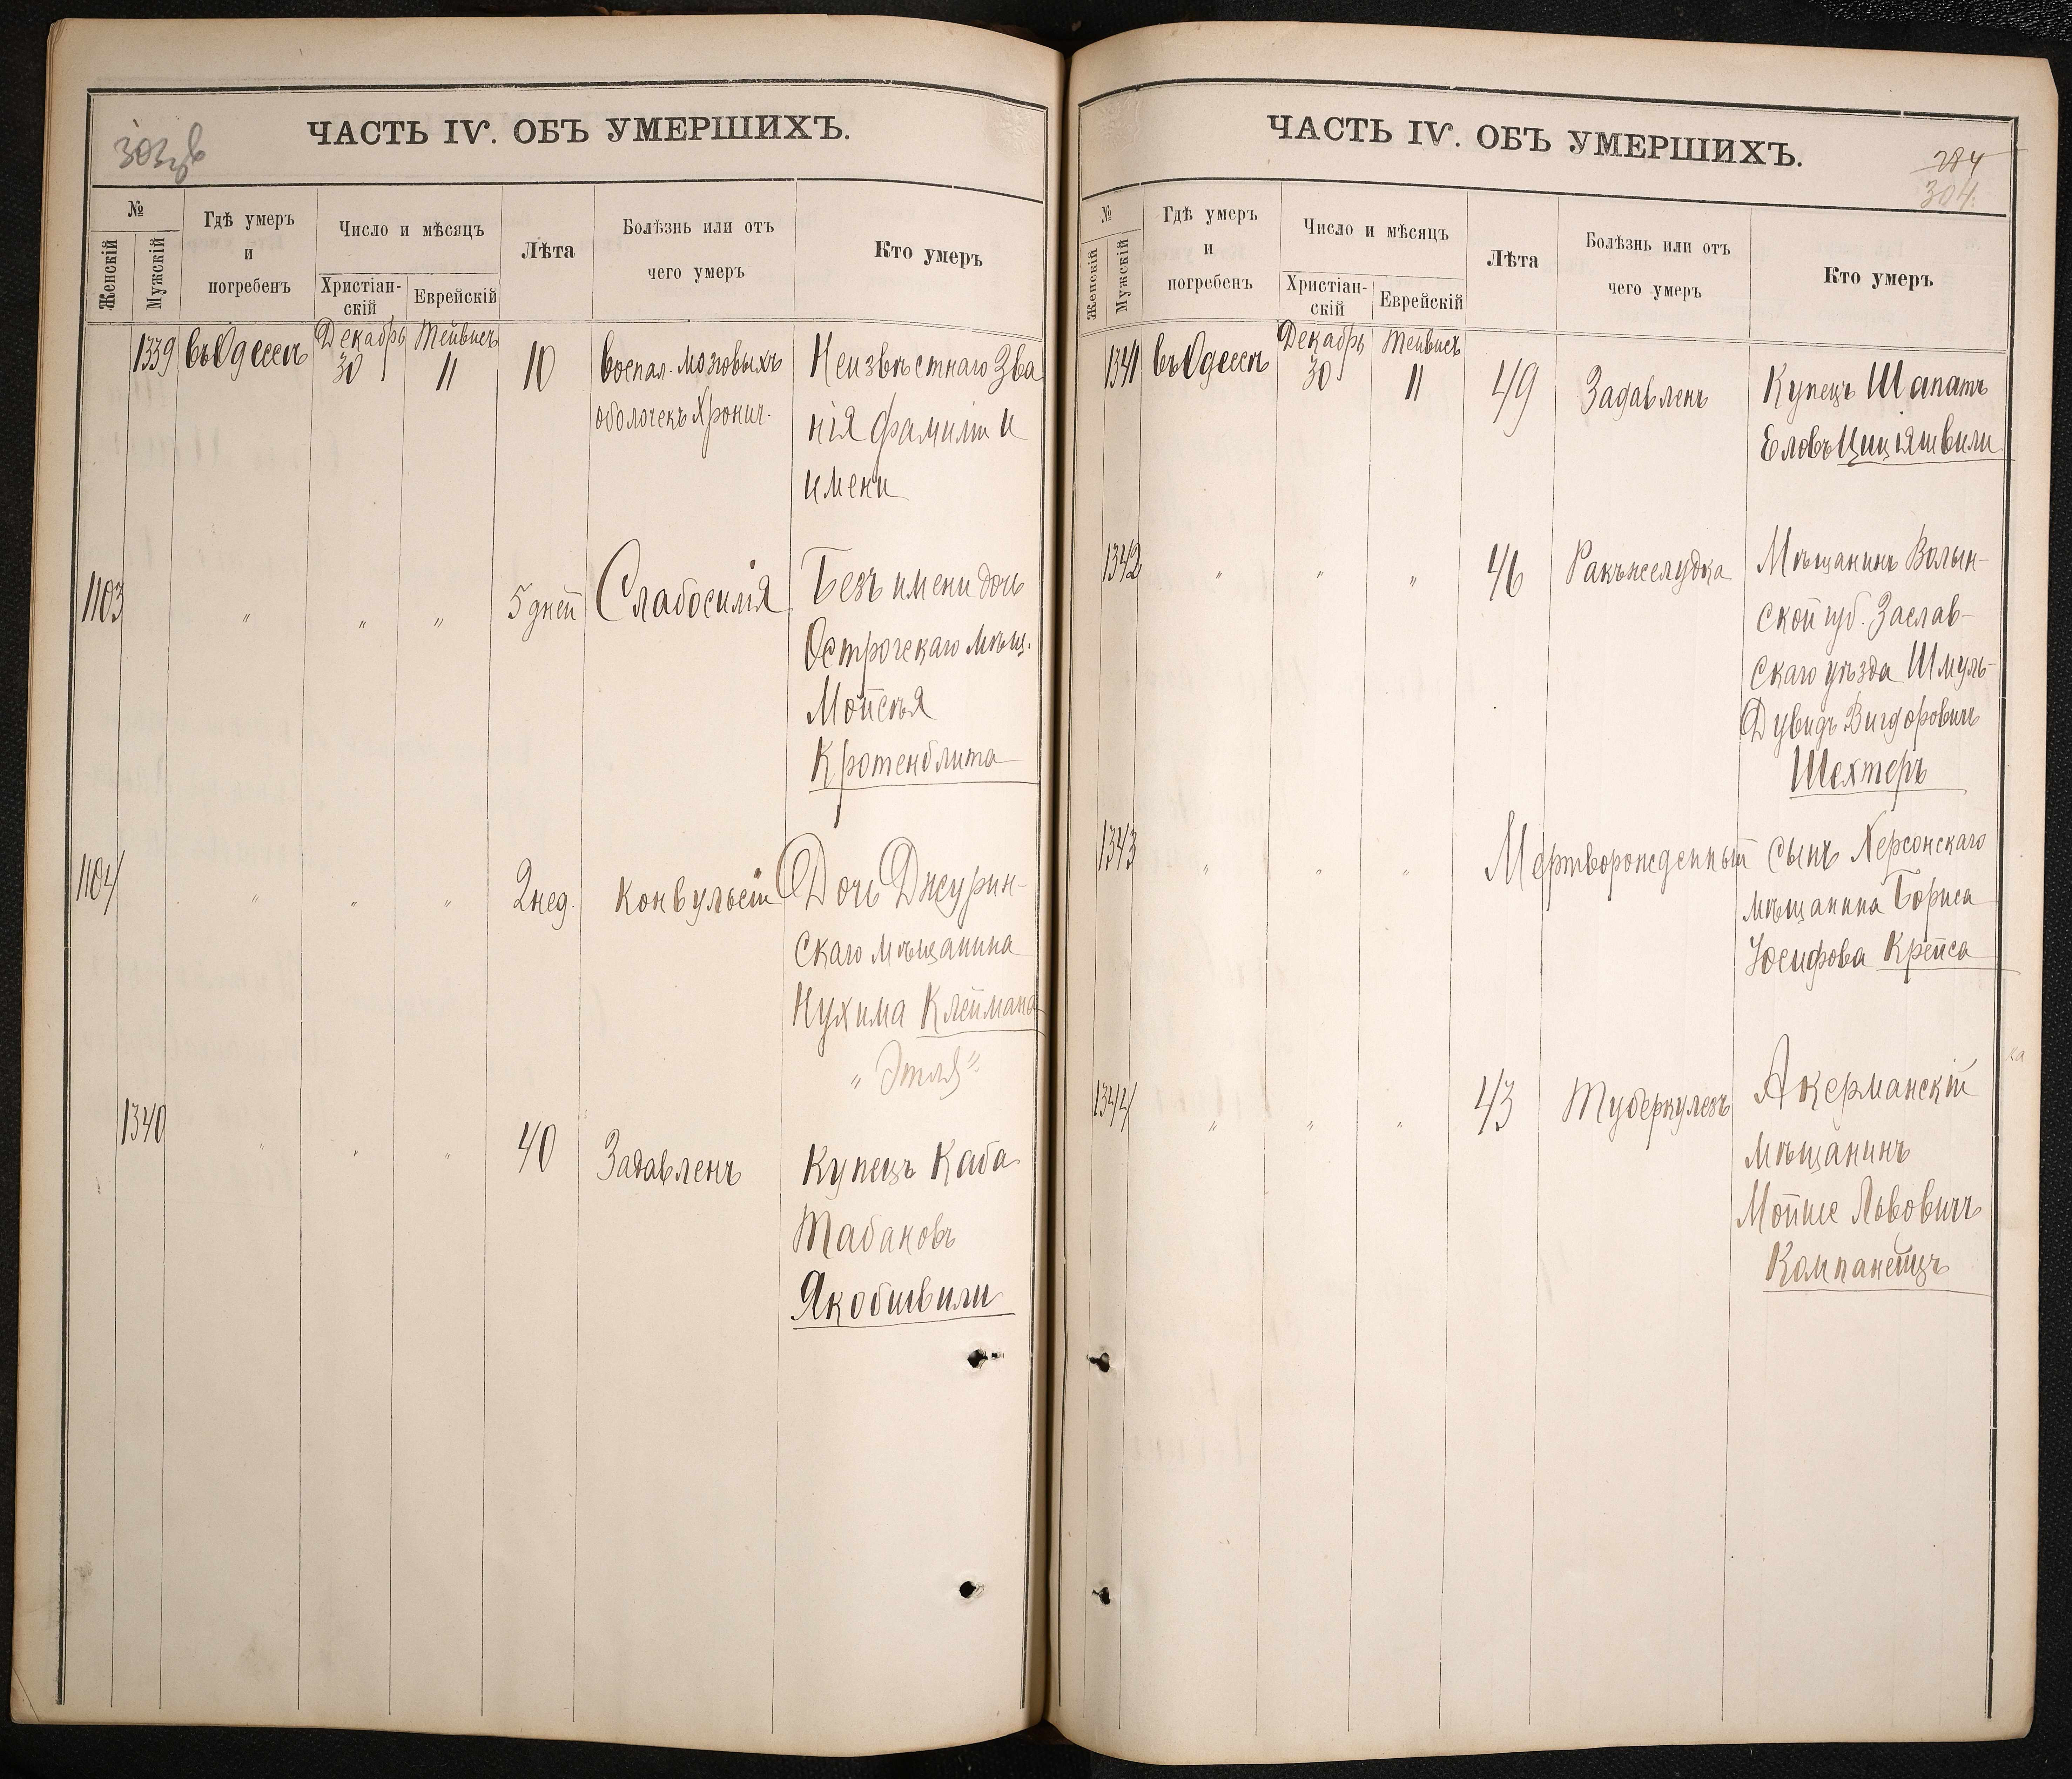 ЧАСТЬ IV. ОБЪ УМЕРШИХЪ.
№
Женскій
Мужскій
Гдѣ умеръ
и
погребенъ
Число и мѣсяцъ
Христіан-
скій
Еврейскій
Лѣта
Болѣзнь или отъ
чего умеръ
Кто умеръ
1339 въ Одессѣ Декабрь 30 Тейвисъ 11 10 воспал. мозговыхъ Неизвѣстнаго Зва
оболочекъ Хронич. нія фамиліи и
имени
1103 " " " 5 дней Слабосилія Безъ имени дочь
Острогскаго мѣщ.
Мойсѣя
Кротенблита
1104 " " " 2 нед. Конвульсіи Дочь Джурин-
скаго мѣщанина
Нухима Клеймана
"Этля"
1340 " " " 40 Задавленъ Купецъ Каба
Табаковъ
Якобишвили
ЧАСТЬ IV. ОБЪ УМЕРШИХЪ.
284
304.
№
Женскій
Мужскій
Гдѣ умеръ
и
погребенъ
Число и мѣсяцъ
Христіан-
скій
Еврейскій
Лѣта
Болѣзнь или отъ
чего умеръ
Кто умеръ
1341 въ Одессѣ Декабрь 30 Тейвисъ 11 49 Задавленъ Купецъ Шапатъ
Еловъ Циціяшвили
1342 " " " 46 Ракъ желудка Мѣщанинъ Волын-
ской губ. Заслав-
скаго уѣзда Шмуль-
Дувидъ Вигдоровичъ
Шехтеръ
1343 " " " Мертворожденный сынъ Херсонскаго
мѣщанина Бориса
Іосифова Крейса
1344 " " " 43 Туберкулезъ Акерманскій
мѣщанинъ
Мойше Львовичъ
Компанеецъ